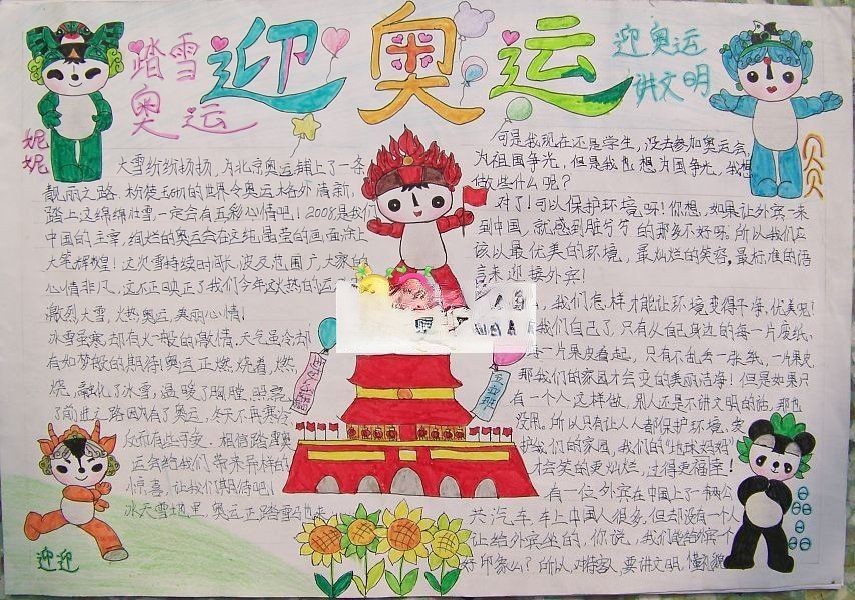 迎奥运
踏雪
奥运
迎奥运
讲文明
妮妮
贝贝
大雪纷纷扬扬，为北京奥运铺上了一条
靓丽之路。粉徒玉砌的世界令奥运格外清新，
踏上这绵绵壮雪，一定会有五彩心情吧！2008是我们
中国的主宰，绚烂的奥运会在这纯晶莹的画面涂上
大笔辉煌！这次雪持续时间长，波及范围广，大家的
心情非凡，这不正映正了我们今年这火热的运
激烈大雪，火热奥运，美丽心情！
冰雪虽寒，却有火一般的激情，天气虽冷却
有如梦般的期待！奥运正燃烧着，燃
烧，融化了冰雪，温暖了胸膛，
了前进之路因为有了奥运，冬天不再寒冷
反而有些可爱。相信踏雪奥
运会给我们带来异样的
惊喜，让我们期待吧！
冰天雪地里，奥运正踏雪
何是我现在还是学生，没去参加奥运会，
为祖国争光，但是我也想为国争光，我想
做些什么呢？
对了！可以保护环境呀！你想，如果让外宾一来
到中国，就感到脏兮兮的那多不好呀。所以我们应
该以最优美的环境，最灿烂的笑容，最标准的语
言来迎接外宾！
我们怎样才能让环境变得干净，优美呢！
我们自己了，只有从自己身边的每一片废纸，
每一片果皮看起，只有不乱丢一张纸，一片果皮
那我们的家园才会变的美丽洁净！但是如果只
有一个人这样做，别人还是不讲文明的话，那也
没用。所以只有让人人都保护环境，爱
护我们的家园，我们的“地球妈妈”
才会笑的更灿烂，过得更福
有一位外宾在中国上了一辆公
共汽车，车上中国人很多，但却没有一个人
让给外宾坐的，你说，我们能给外宾一个
好印象么？所以，对待客人，要讲文明，懂礼貌
五班
迎迎